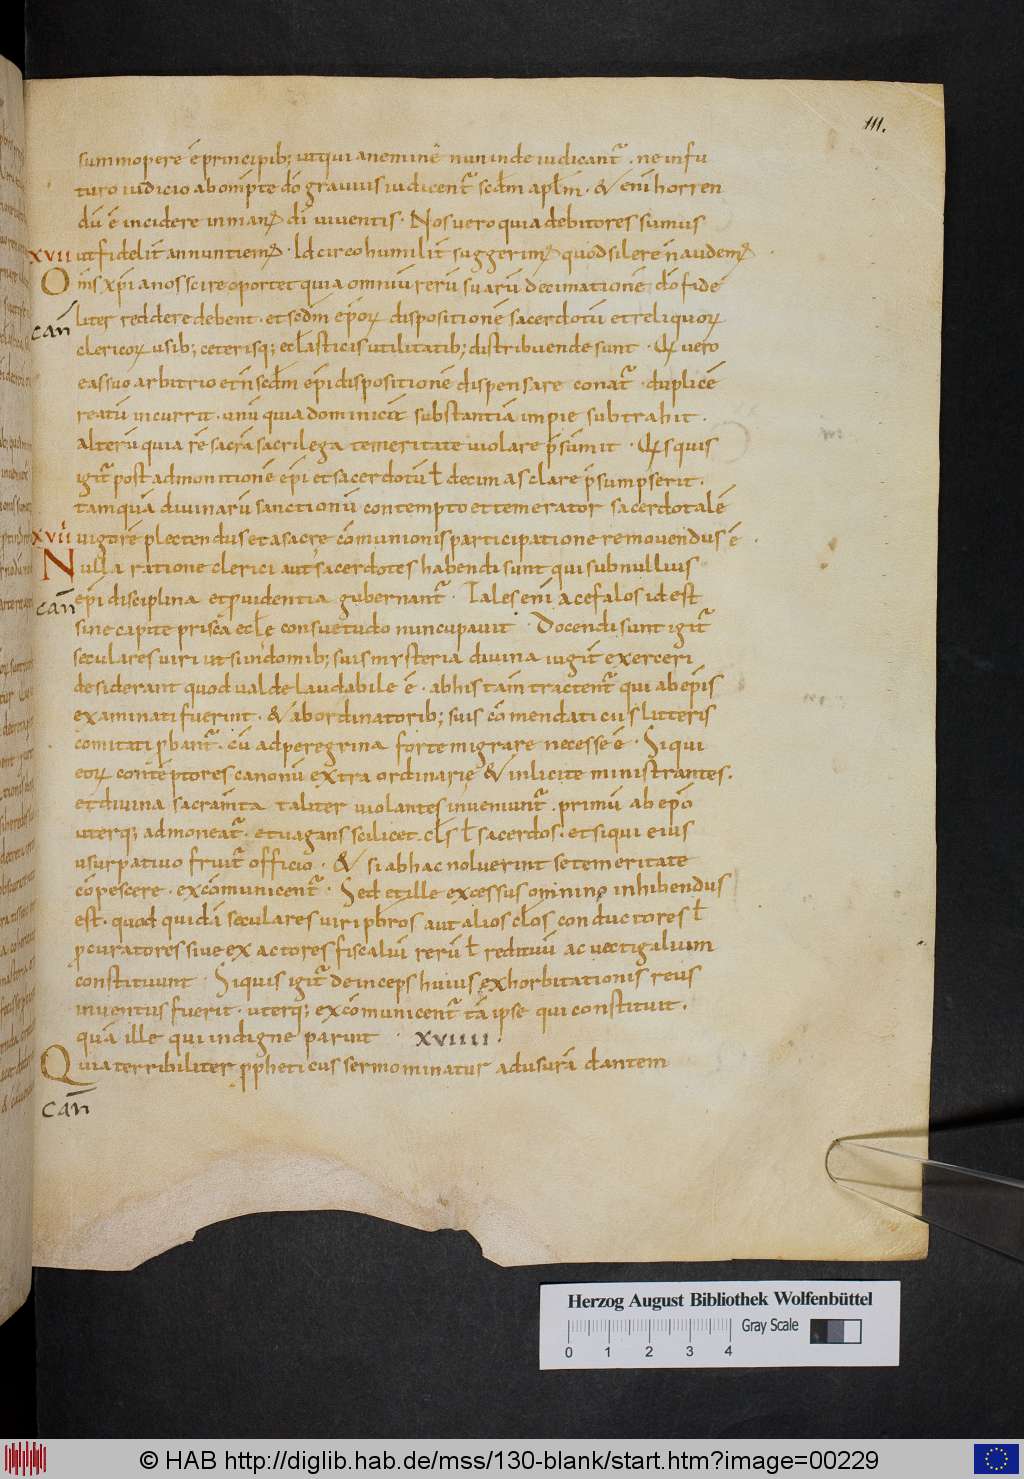 111.
summopere ē principib; ut qui a nemine nunc inde iudicant᷑. ne in fu
turo iudicio ab omp̄te dō gravius iudicent᷑ scdm̄ apl̄m. & enī horren
dū ē incidere in man᷒ dī viventis. Nos vero quia debitores sumus
xvii ut fidelit̄ annuntiem᷒. Idcirco humilit̄ suggerim᷒ quod silere n̄ audem᷒
Om̄s xp̄ianos scire oportet quia omniū rerū suarū decimationē dō fide
can̄ liter reddere debent. et scdm̄ ep̄oꝝ dispositionē sacerdotū et reliquoꝝ
clericoꝝ usib; ceterisq; eccl̄asticis utilitatib; distribuende sunt. Qui vero
eas suo arbitrio et n̄ scdm̄ ep̄i dispositionē dispensare conat᷑. duplicē
reatū incurrit. unū quia dominicā substantiā impie subtrahit.
alterū quia rē sacrā sacrilega temeritate violare p̄sumit. Quisquis
igit᷑ post admonitionē ep̄i et sacerdotū ł decimas clare p̄sumpserit.
tamquā divinarū sanctionū contemptor et temerator sacerdotalē
xviii vigorē plectendus et a sacrę cōmunionis participatione removendus ē.
Nulla ratione clerici aut sacerdotes habendi sunt qui sub nullius
can̄ ep̄i disciplina et ꝓvidentia gubernant᷑. Tales enī acefalos id est
sine capite prisca eccl̄ę consuetudo nuncupavit. Docendi sunt igit᷑
seculares viri ut si in domib; suis mysteria divina iugit̄ exerceri
desiderant quod valde laudabile ē. ab his tam̄ tractent᷑ qui ab ep̄is
examinati fuerint. & ab ordinatorib; suis cōmendaticiis litteris
comitati ꝓbant᷑. cū ad peregrina forte migrare necesse ē. Si qui
eoꝝ contēptores canonū extra ordinarię & inlicite ministrantes.
et divina sacram̄ta taliter violantes inveniunt᷑. primū ab ep̄o
uterq; admoneat᷑. et vagans scilicet cl̄s ł sacerdos. et si qui eius
usurpativo fruit᷑ officio. & si ab hac noluerint se temeritate
cōpescere. excōmunicent᷑. Sed et ille excessus omnino inhibendus
est. quod quidā seculares viri p̄bros aut alios cl̄os conductores ł
ꝓcuratores sive exactores fiscaliū rerū ł redituū ac vectigalium
constituunt. Si quis igit᷑ deinceps huius exhorbitationis reus
inventus fuerit. uterq; excōmunicent᷑ tā ipse qui constituit.
quā ille qui indigne parint. xviiii.
Quia terribiliter ꝓpheticus sermo minatur ad usurā dantem
can̄
Herzog August Bibliothek Wolfenbüttel
Gray Scale
0 1 2 3 4
© HAB http://diglib.hab.de/mss/130-blank/start.htm?image=00229